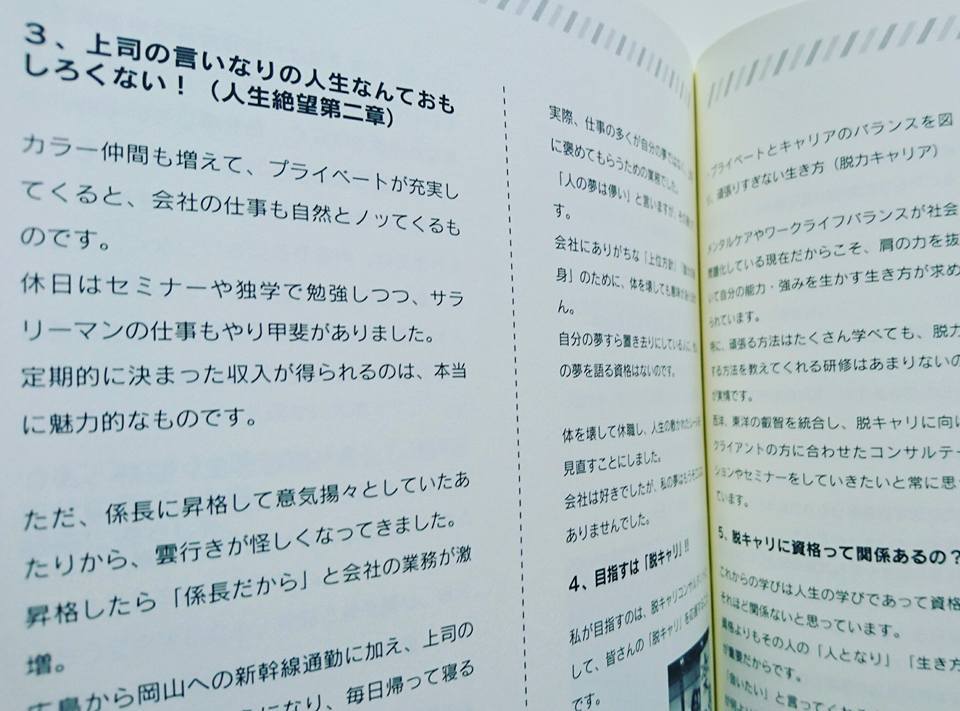 3、上司の言いなりの人生なんておも
しろくない！（人生絶望第二章）
カラー仲間も増えて、プライベートが充実し
てくると、会社の仕事も自然とノッてくるも
のです。
休日はセミナーや独学で勉強しつつ、サラ
リーマンの仕事もやり甲斐がありました。
定期的に決まった収入が得られるのは、本当
に魅力的なものです。
ただ、係長に昇格して意気揚々としていたあ
たりから、雲行きが怪しくなってきました。
昇格したら「係長だから」と会社の業務が激
増。
広島から岡山への新幹線通勤に加え、上司の
になり、毎日帰って寝る
実際、仕事の多くが自分の夢ではなく、
に褒めてもらうための業務でした。
「人の夢は儚い」と言いますが、
す。
会社にありがちな「上位方針」
身」のために、体を壊しても
ん。
自分の夢すら置き去りにしている人に、
の夢を語る資格はないのです。
体を壊して休職し、人生の敷かれたレールを
見直すことにしました。
会社は好きでしたが、私の夢は
ありませんでした。
4、目指すは「脱キャリ」!!
私が目指すのは、脱キャリコンサルタント
して、皆さんの「脱キャリ」を
です。
プライベートとキャリアのバランスを図
頑張りすぎない生き方（脱力キャリア）
メンタルケアやワークライフバランスが社会
問題化している現在だからこそ、肩の力を抜
いて自分の能力・強みを生かす生き方が求め
られています。
特に、頑張る方法はたくさん学べても、脱力
する方法を教えてくれる研修はあまりないの
が実情です。
西洋、東洋の叡智を統合し、脱キャリに向け
クライアントの方に合わせたコンサルテー
ションやセミナーをしていきたいと常に思っ
ています。
5、脱キャリに資格って関係あるの？
これからの学びは人生の学びであって資格
それほど関係ないと思っています。
資格よりもその人の「人となり」「生き方
が重要だからです。
「会いたい」と言ってくれる